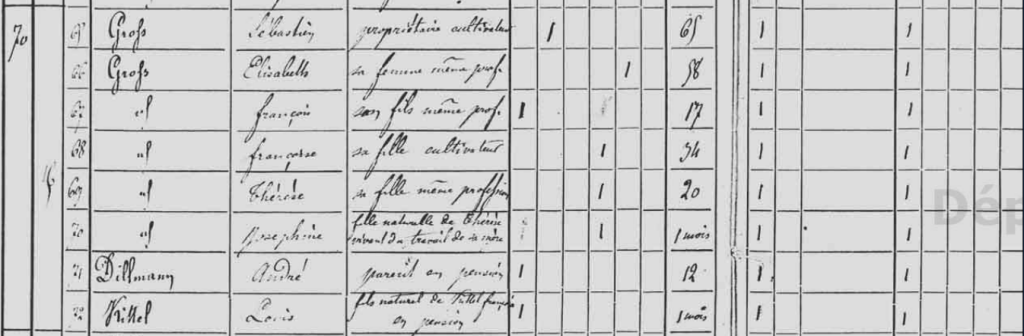 70 65 Gross Sébastien propriétaire cultivateur 1 65 1 1
66 Gross Elisabeth sa femme même prof. 1 58 1 1
67 id françois son fils même prof. 1 17 1 1
68 id françoise sa fille cultivateur 1 34 1 1
69 id Thérèse sa fille même profession 1 20 1 1
70 id Joséphine fille naturelle de Thérèse
vivant du travail de sa mère 1 1 mois 1 1
71 Dillmann André parent en pension 1 12 1 1
72 Kittel Louis fils naturel de Kittel françoise
en pension 1 1 mois 1 1
Dép